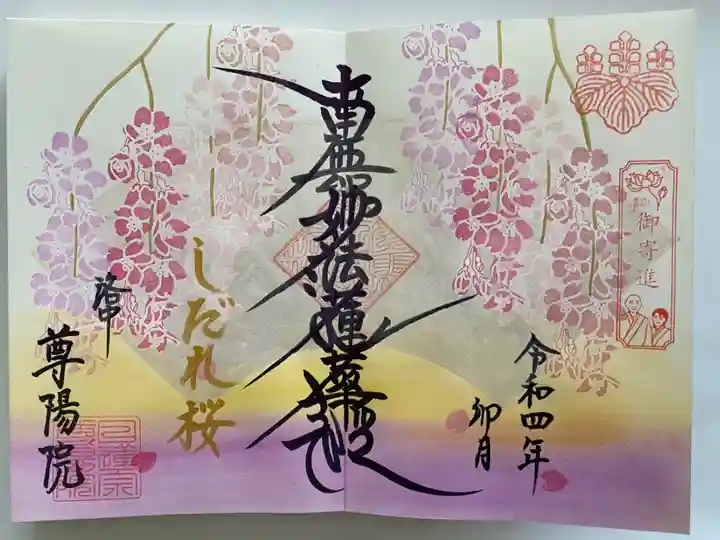 御寄進
令和四年
卯月
南無妙法蓮華経
しだれ桜
尊陽院